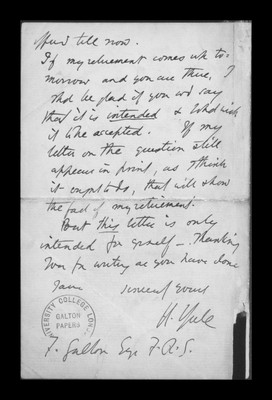 till now.
If my retirement comes up to-
morrow and you are there, I
shd be glad if you wd say
that it is intended & I shd wish
it to be accepted. If my
letter on the question still
appears in print, as I think
it ought to do, that will show
the fact of my retirement.
But this letter is only
intended for yourself – Thanking
you for writing as you have done
I am sincerely yours
H. Yule
F. Galton Esqe F.R.S.
UNIVERSITY COLLEGE LONDON
GALTON
PAPERS